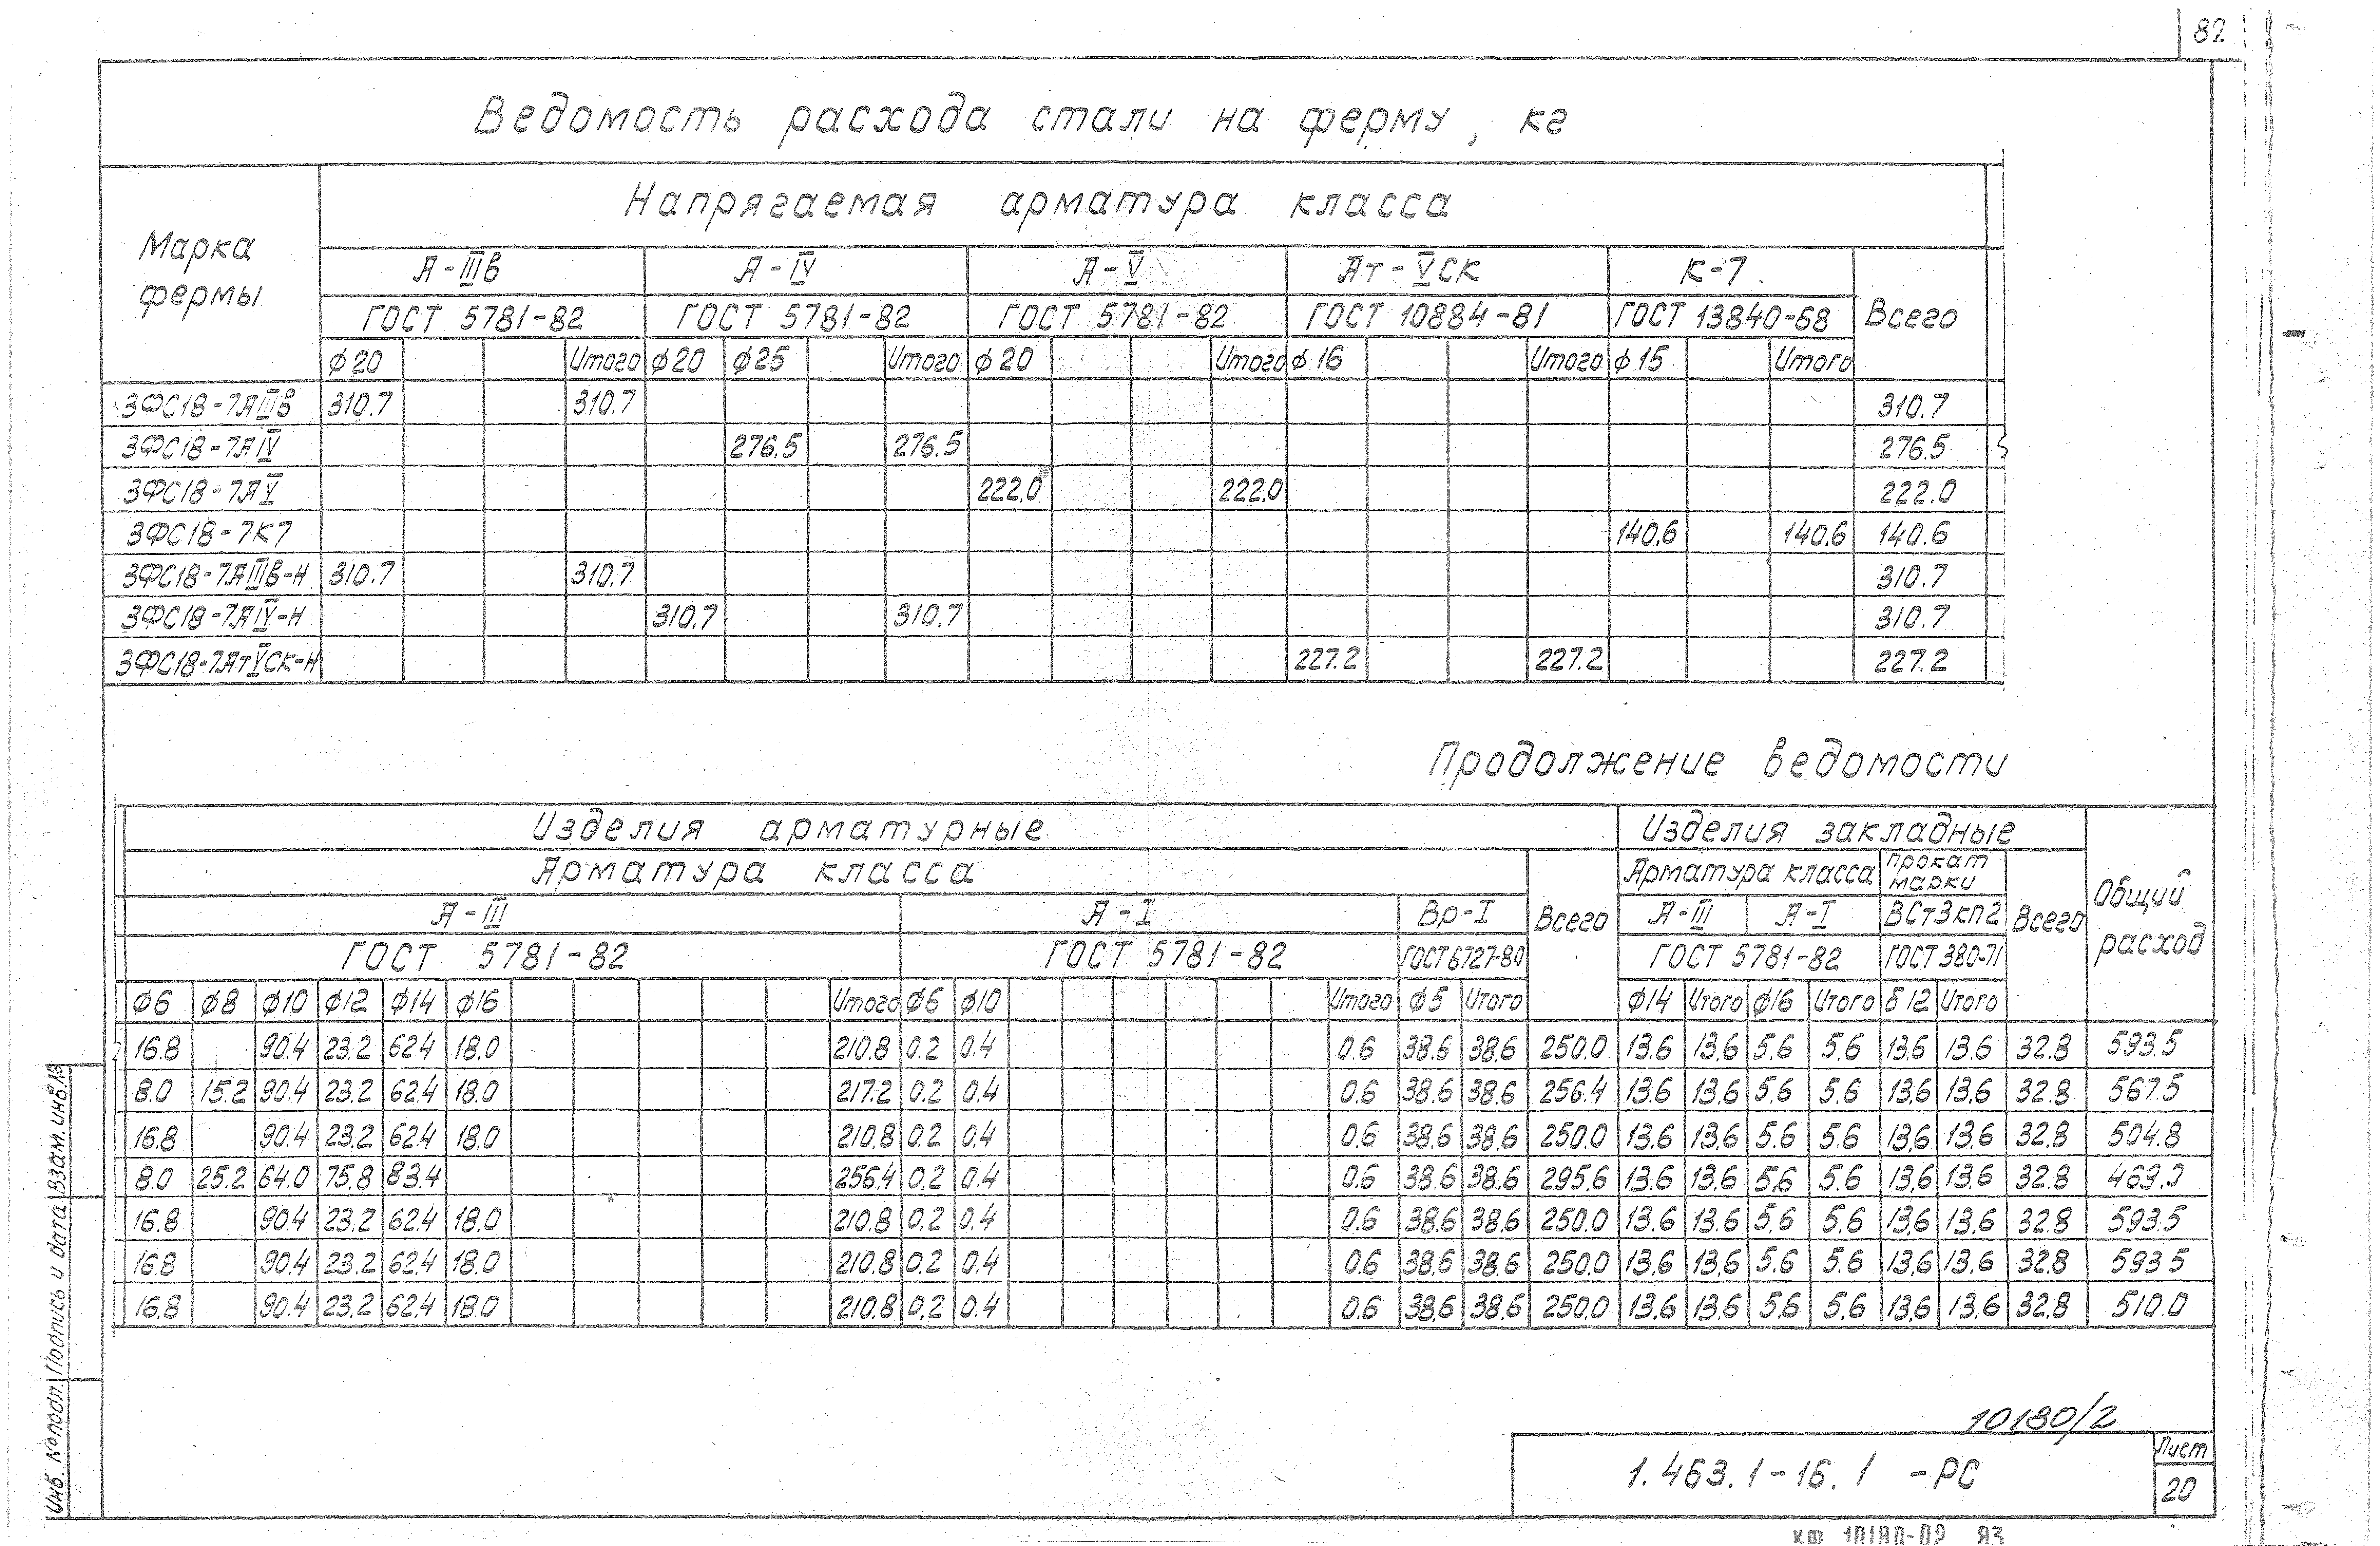 82
Ведомость расхода стали на ферму, кг
Марка фермы
Напрягаемая арматура класса
А-IIIв А-IV А-V Ат-VСК К-7 Всего
ГОСТ 5781-82 ГОСТ 5781-82 ГОСТ 5781-82 ГОСТ 10884-81 ГОСТ 13840-68
ф20 Итого ф20 ф25 Итого ф20 Итого ф16 Итого ф15 Итого
3ФС18-7АIIIв 310.7 310.7 310.7
3ФС18-7АIV 276.5 276.5 276.5
3ФС18-7АV 222.0 222.0 222.0
3ФС18-7К7 140.6 140.6 140.6
3ФС18-7АIIIв-Н 310.7 310.7 310.7
3ФС18-7АIV-Н 310.7 310.7 310.7
3ФС18-7АтVСК-Н 227.2 227.2 227.2
Продолжение ведомости
Изделия арматурные Изделия закладные Общий расход
Арматура класса Всего Арматура класса Прокат марки Всего
А-III А-I Вр-I А-III А-I ВСт3кп2
ГОСТ 5781-82 ГОСТ 5781-82 ГОСТ 6727-80 ГОСТ 5781-82 ГОСТ 380-71
ф6 ф8 ф10 ф12 ф14 ф16 Итого ф6 ф10 Итого ф5 Итого ф14 Итого ф16 Итого δ12 Итого
16.8 90.4 23.2 62.4 18.0 210.8 0.2 0.4 0.6 38.6 38.6 250.0 13.6 13.6 5.6 5.6 13.6 13.6 32.8 593.5
8.0 15.2 90.4 23.2 62.4 18.0 217.2 0.2 0.4 0.6 38.6 38.6 256.4 13.6 13.6 5.6 5.6 13.6 13.6 32.8 567.5
16.8 90.4 23.2 62.4 18.0 210.8 0.2 0.4 0.6 38.6 38.6 250.0 13.6 13.6 5.6 5.6 13.6 13.6 32.8 504.8
8.0 25.2 64.0 75.8 83.4 256.4 0.2 0.4 0.6 38.6 38.6 295.6 13.6 13.6 5.6 5.6 13.6 13.6 32.8
16.8 90.4 23.2 62.4 18.0 210.8 0.2 0.4 0.6 38.6 38.6 250.0 13.6 13.6 5.6 5.6 13.6 13.6 32.8 593.5
16.8 90.4 23.2 62.4 18.0 210.8 0.2 0.4 0.6 38.6 38.6 250.0 13.6 13.6 5.6 5.6 13.6 13.6 32.8 593.5
16.8 90.4 23.2 62.4 18.0 210.8 0.2 0.4 0.6 38.6 38.6 250.0 13.6 13.6 5.6 5.6 13.6 13.6 32.8 510.0
Инв. № подл. Подпись и дата Взам. инв. №
10180/2
1.463.1-16.1 -РС
Лист
20
КФ 10180-02 83